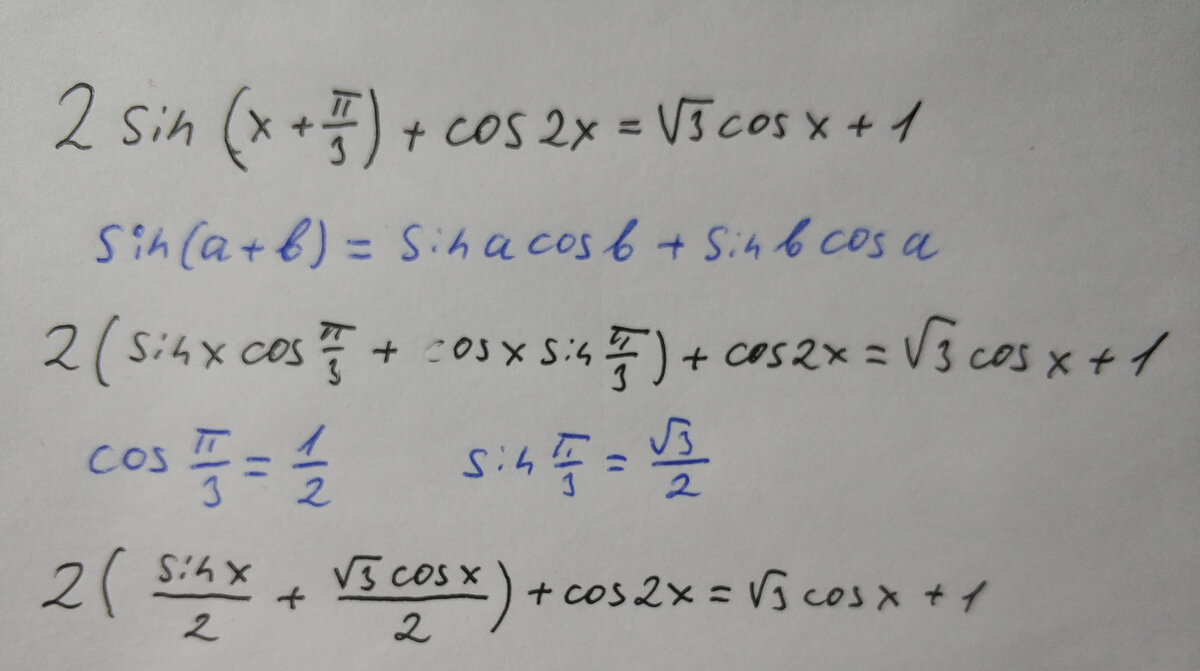 2 sin (x + π/3) + cos 2x = √3 cos x + 1
sin(a + b) = sin a cos b + sin b cos a
2 (sin x cos π/3 + cos x sin π/3) + cos 2x = √3 cos x + 1
cos π/3 = 1/2 sin π/3 = √3/2
2 ( sin x/2 + √3 cos x/2 ) + cos 2x = √3 cos x + 1